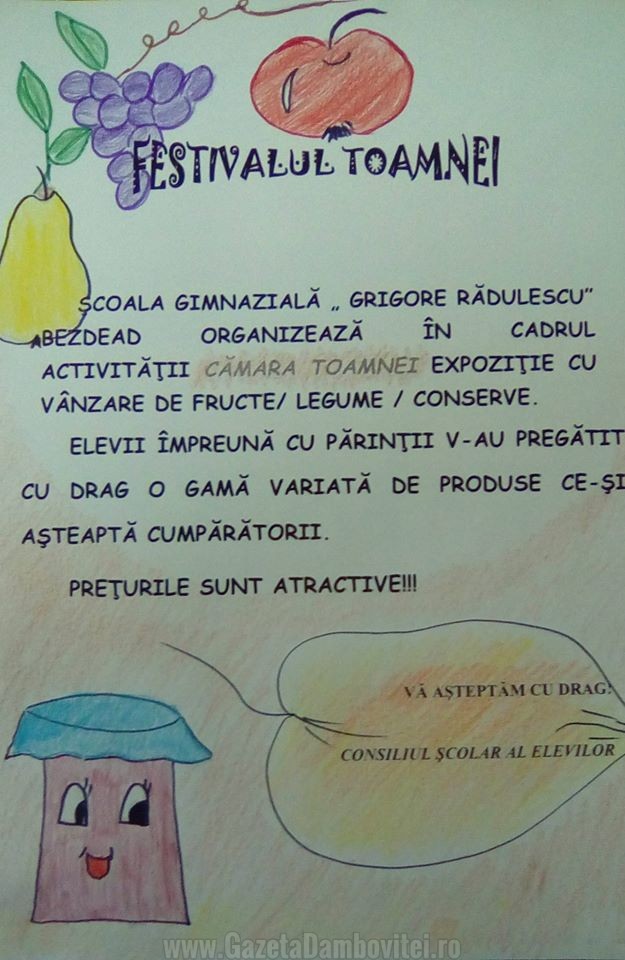 FESTIVALUL TOAMNEI
ŞCOALA GIMNAZIALĂ „ GRIGORE RĂDULESCU”
BEZDEAD ORGANIZEAZĂ ÎN CADRUL
ACTIVITĂŢII CĂMARA TOAMNEI EXPOZIŢIE CU
VÂNZARE DE FRUCTE/ LEGUME / CONSERVE.
ELEVII ÎMPREUNĂ CU PĂRINŢII V-AU PREGĂTIT
CU DRAG O GAMĂ VARIATĂ DE PRODUSE CE-ŞI
AŞTEAPTĂ CUMPĂRĂTORII.
PREŢURILE SUNT ATRACTIVE!!!
VĂ AŞTEPTĂM CU DRAG!
CONSILIUL ŞCOLAR AL ELEVILOR
www.GazetaDambovitei.ro